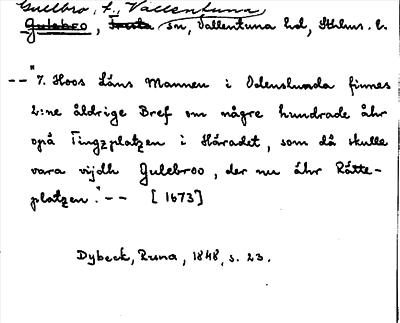 Gullbro, t., Vallentuna,
Gulebro, Fresta sn, Vallentuna hd, Sthlms l.
-- "7. Hoos Läns Mannen i Odenslunda finnes
2:ne åldrige Bref om någre hundrade åhr
opå Tingzplatzen i Häradet, som då skulle
vara vijdh Gulebroo, der nu ähr Rätte-
platzen." -- [1673]
Dybeck, Runa, 1848, s. 23.